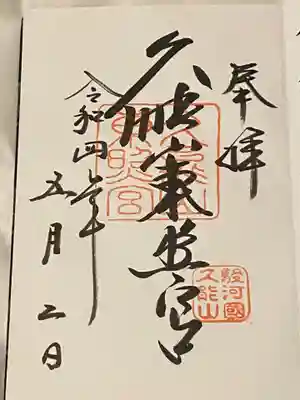 奉拝
久能山東照宮
令和四年
五月二日
久能山
東照宮
駿河國
久能山